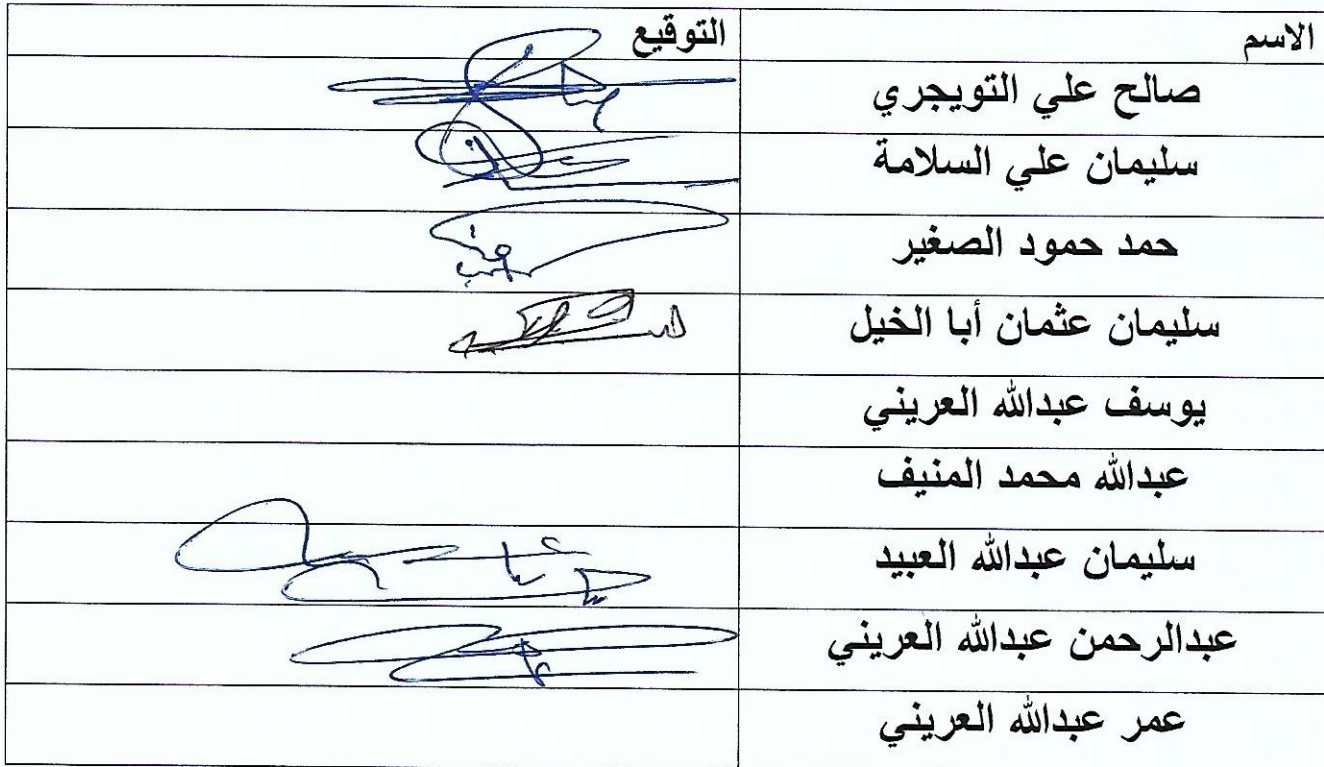 الاسم التوقيع
صالح علي التويجري
سليمان علي السلامة
حمد حمود الصغير
سليمان عثمان أبا الخيل
يوسف عبدالله العريني
عبدالله محمد المنيف
سليمان عبدالله العبيد
عبدالرحمن عبدالله العريني
عمر عبدالله العريني